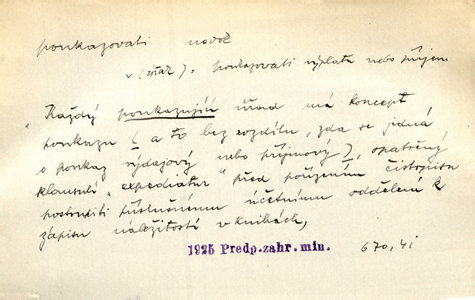 poukazovati nedok
v (etať). poukazovati výplatu nebo příjem
"Každý poukazující úřad má koncept
poukazu (a to bez rozdílu, zda se jedná
o poukaz výdajový nebo příjmový), opatřený
klausulí "expediatur" před pořízením čistopisu
postoupiti příslušnému účetnímu oddělení k
zápisu náležitosti v knihách,
1925 Predp. zahr. min. 670, 41